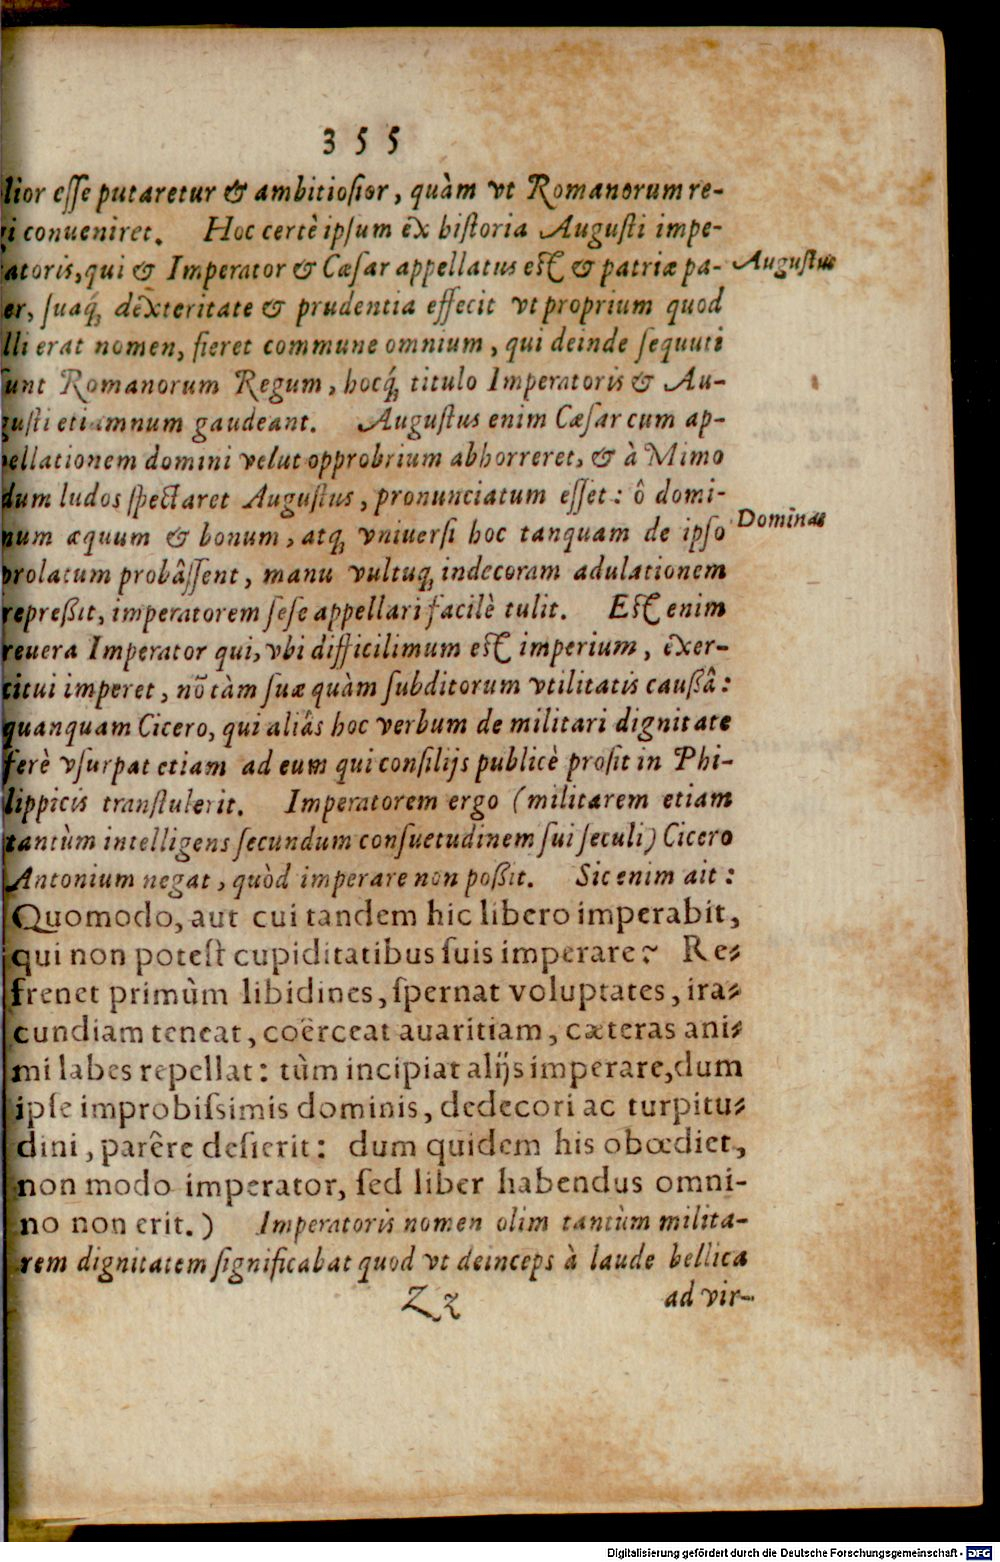 355
lior eſſe putaretur & ambitioſior, quàm vt Romanorum re-
gi conueniret. Hoc certè ipſum ex hiſtoria Auguſti impe-
ratoris, qui & Imperator & Cæſar appellatus eſt & patriæ pa-
Auguſtus
er, ſuaq́; dexteritate & prudentia effecit vt proprium quod
lli erat nomen, fieret commune omnium, qui deinde ſequuti
ſunt Romanorum Regum, hocq́; titulo Imperatoris & Au-
guſti etiamnum gaudeant. Auguſtus enim Cæſar cum ap-
pellationem domini velut opprobrium abhorreret, & à Mimo
dum ludos ſpectaret Auguſtus, pronunciatum eſſet: ô domi-
num æquum & bonum, atq; vniuerſi hoc tanquam de ipſo
Dominus
prolatum probâſſent, manu vultuq; indecoram adulationem
repreßit, imperatorem ſeſe appellari facilè tulit. Eſt enim
reuera Imperator qui, vbi difficilimum eſt imperium, exer-
citui imperet, nō tàm ſuæ quàm ſubditorum vtilitatis cauſsâ:
quanquam Cicero, qui aliâs hoc verbum de militari dignitate
ferè vſurpat etiam ad eum qui conſilijs publicè proſit in Phi-
lippicis tranſtulerit. Imperatorem ergo (militarem etiam
tantùm intelligens ſecundum conſuetudinem ſui ſeculi) Cicero
Antonium negat, quòd imperare non poßit. Sic enim ait:
Quomodo, aut cui tandem hic libero imperabit,
qui non poteſt cupiditatibus ſuis imperare? Re-
frenet primùm libidines, ſpernat voluptates, ira-
cundiam teneat, coërceat auaritiam, cæteras ani-
mi labes repellat: tùm incipiat alijs imperare, dum
ipſe improbiſsimis dominis, dedecori ac turpitu-
dini, parêre deſierit: dum quidem his obœdiet,
non modo imperator, ſed liber habendus omni-
no non erit.) Imperatoris nomen olim tantùm milita-
rem dignitatem ſignificabat quod vt deinceps à laude bellica
Zz ad vir-
Digitalisierung gefördert durch die Deutsche Forschungsgemeinschaft - DFG